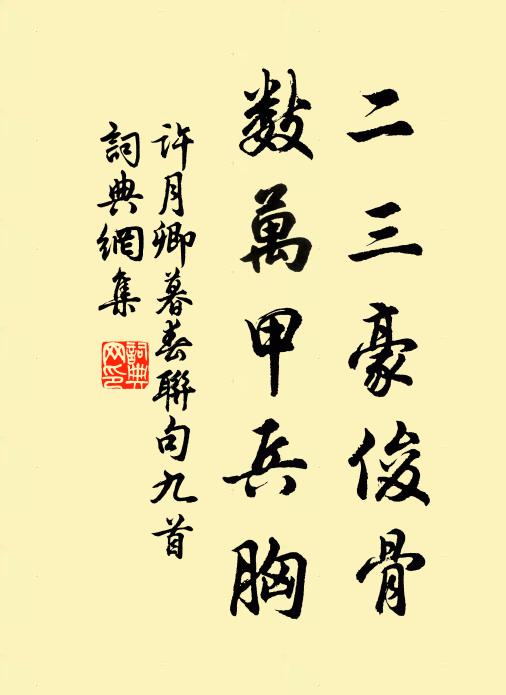 二三豪俊骨
數萬甲兵胸
許月卿暮春聯句九首
詞典網集
詞典網印